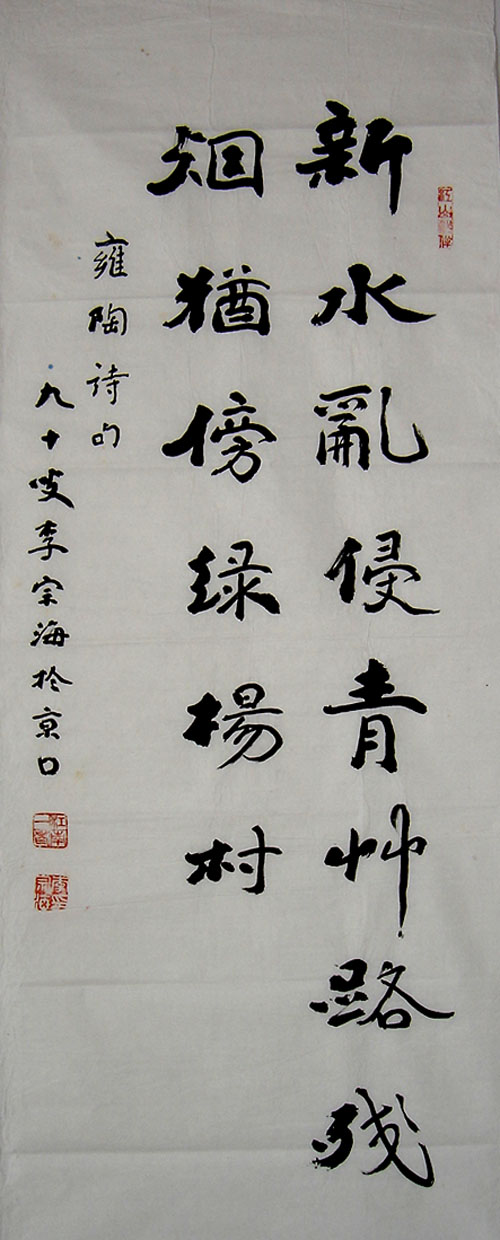 新水亂侵青艸路残
烟猶傍緑楊村
雍陶诗句
九十叟李宗海於京口